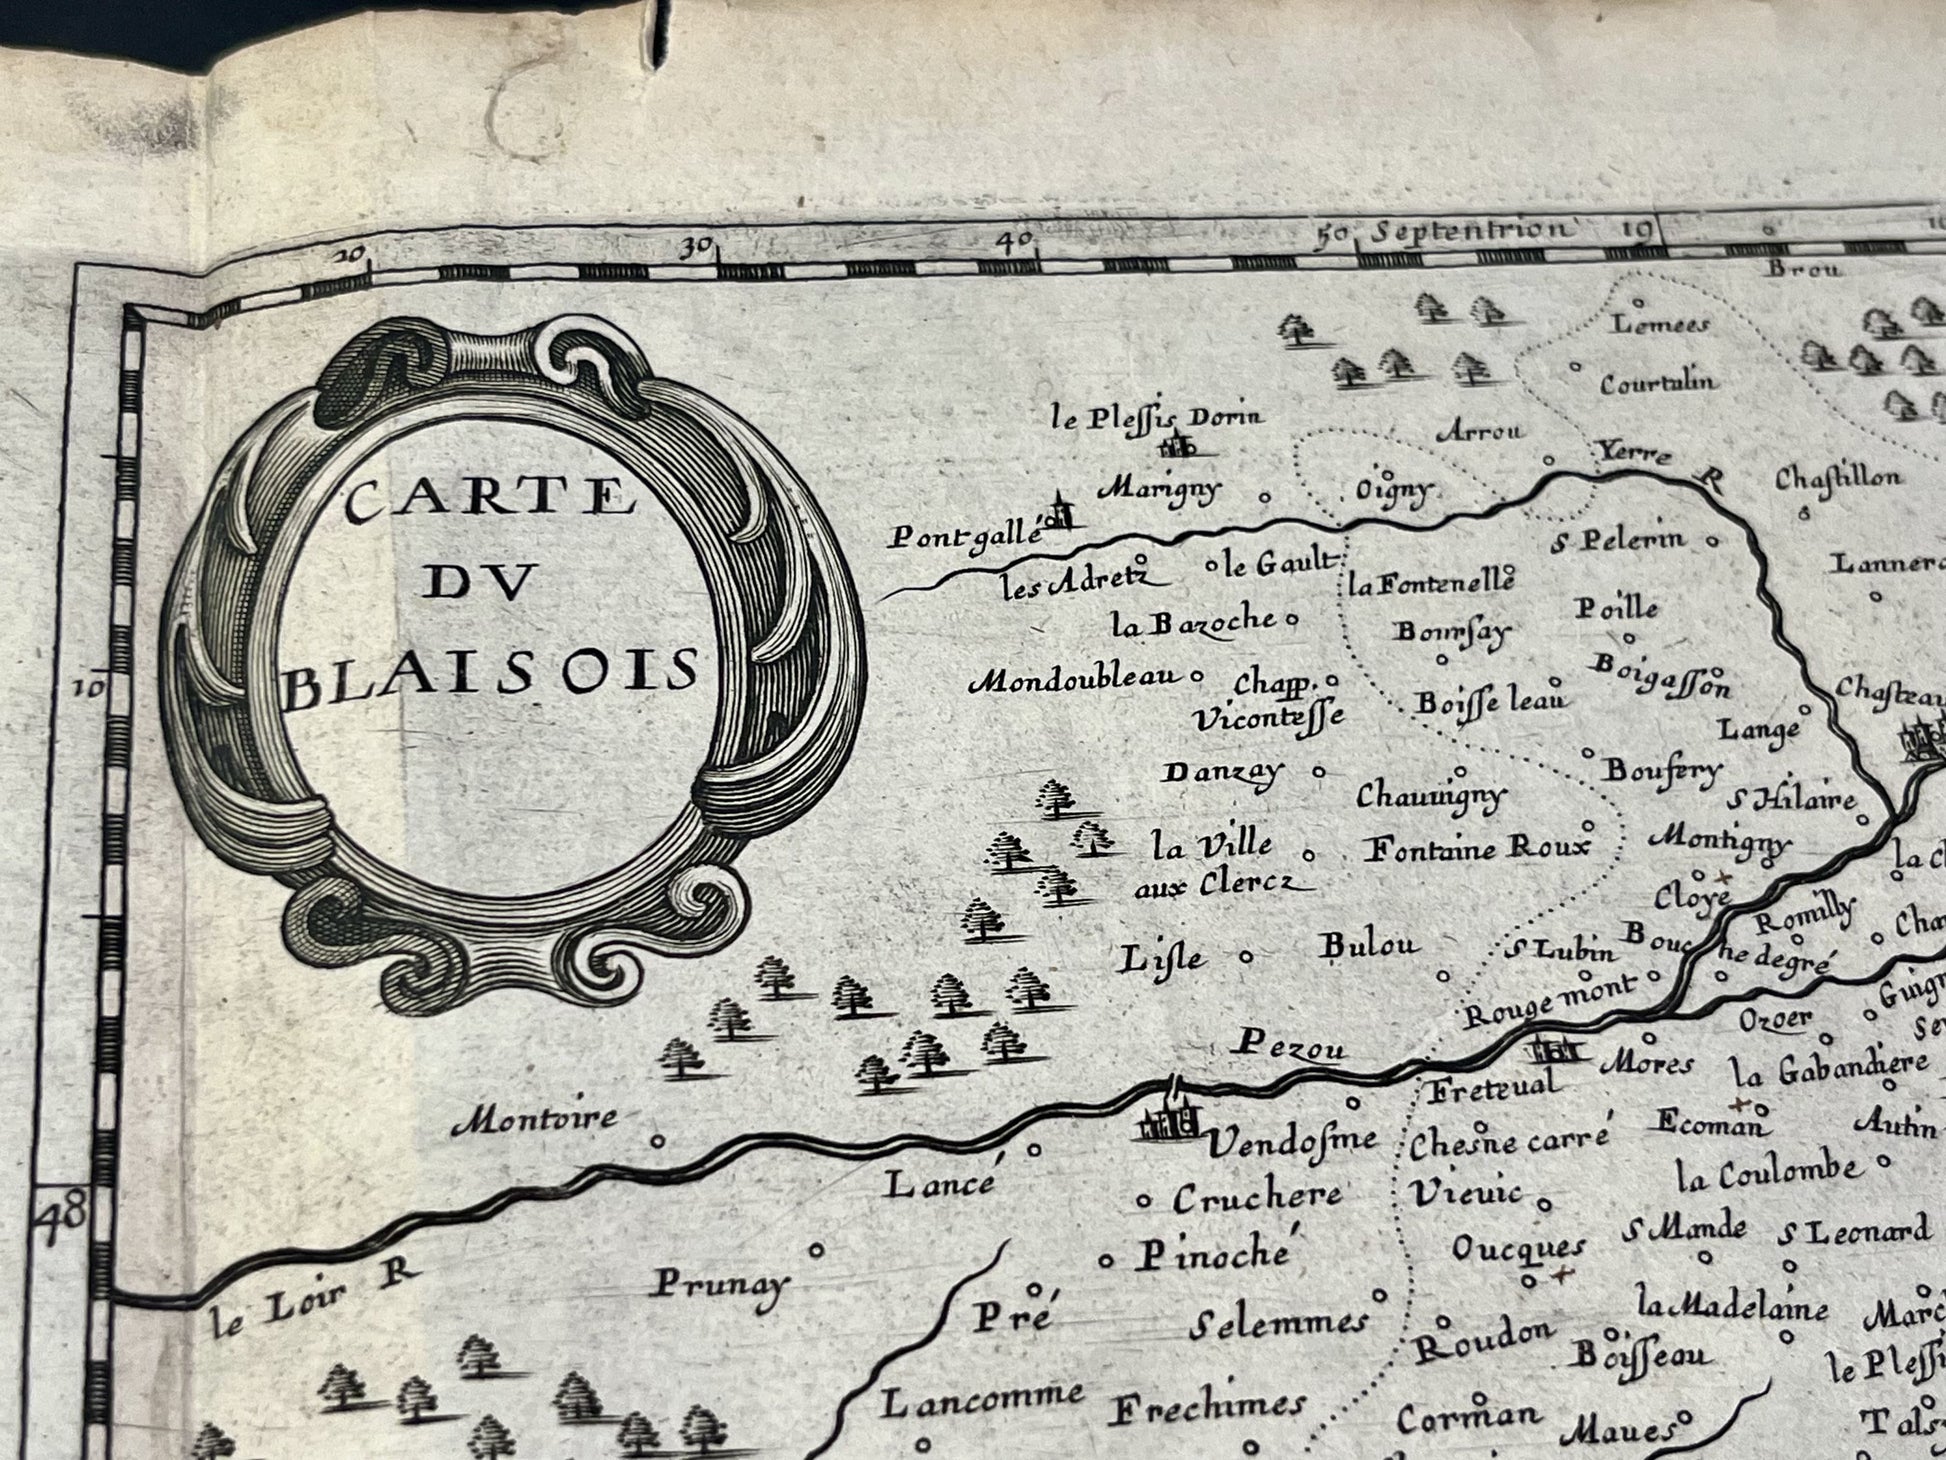 20 30 40 50 Septentrion 19
CARTE
DV
BLAISOIS
10
48
Brou
Lemees
Courtalin
le Pleſſis Dorin
Arrou
Yerre R
Marigny
Oigny
Chaſtillon
Pontgallé
les Adretz
le Gault
S Pelerin
la Fontenelle
la Bazoche
Bourſay
Poille
Boigaſſon
Mondoubleau
Chapp.
Viconteſſe
Boiſſe leau
Lange
Danzay
Chauuigny
Boufery
S Hilaire
la Ville
aux Clercz
Fontaine Roux
Montigny
Cloye
Romilly
Liſle
Bulou
S Lubin
Bouche degré
Rouge mont
Ozoer
Pezou
Mores
la Gabandiere
Freteual
Montoire
Vendoſme
Chesne carré
Ecoman
Autin
Lancé
Cruchere
Vieuic
la Coulombe
Pinoché
Oucques
S Mande
S Leonard
le Loir R
Prunay
Pré
Selemmes
la Madelaine
Roudon
Boiſſeau
Lancomme
Frechimes
Corman
Maues